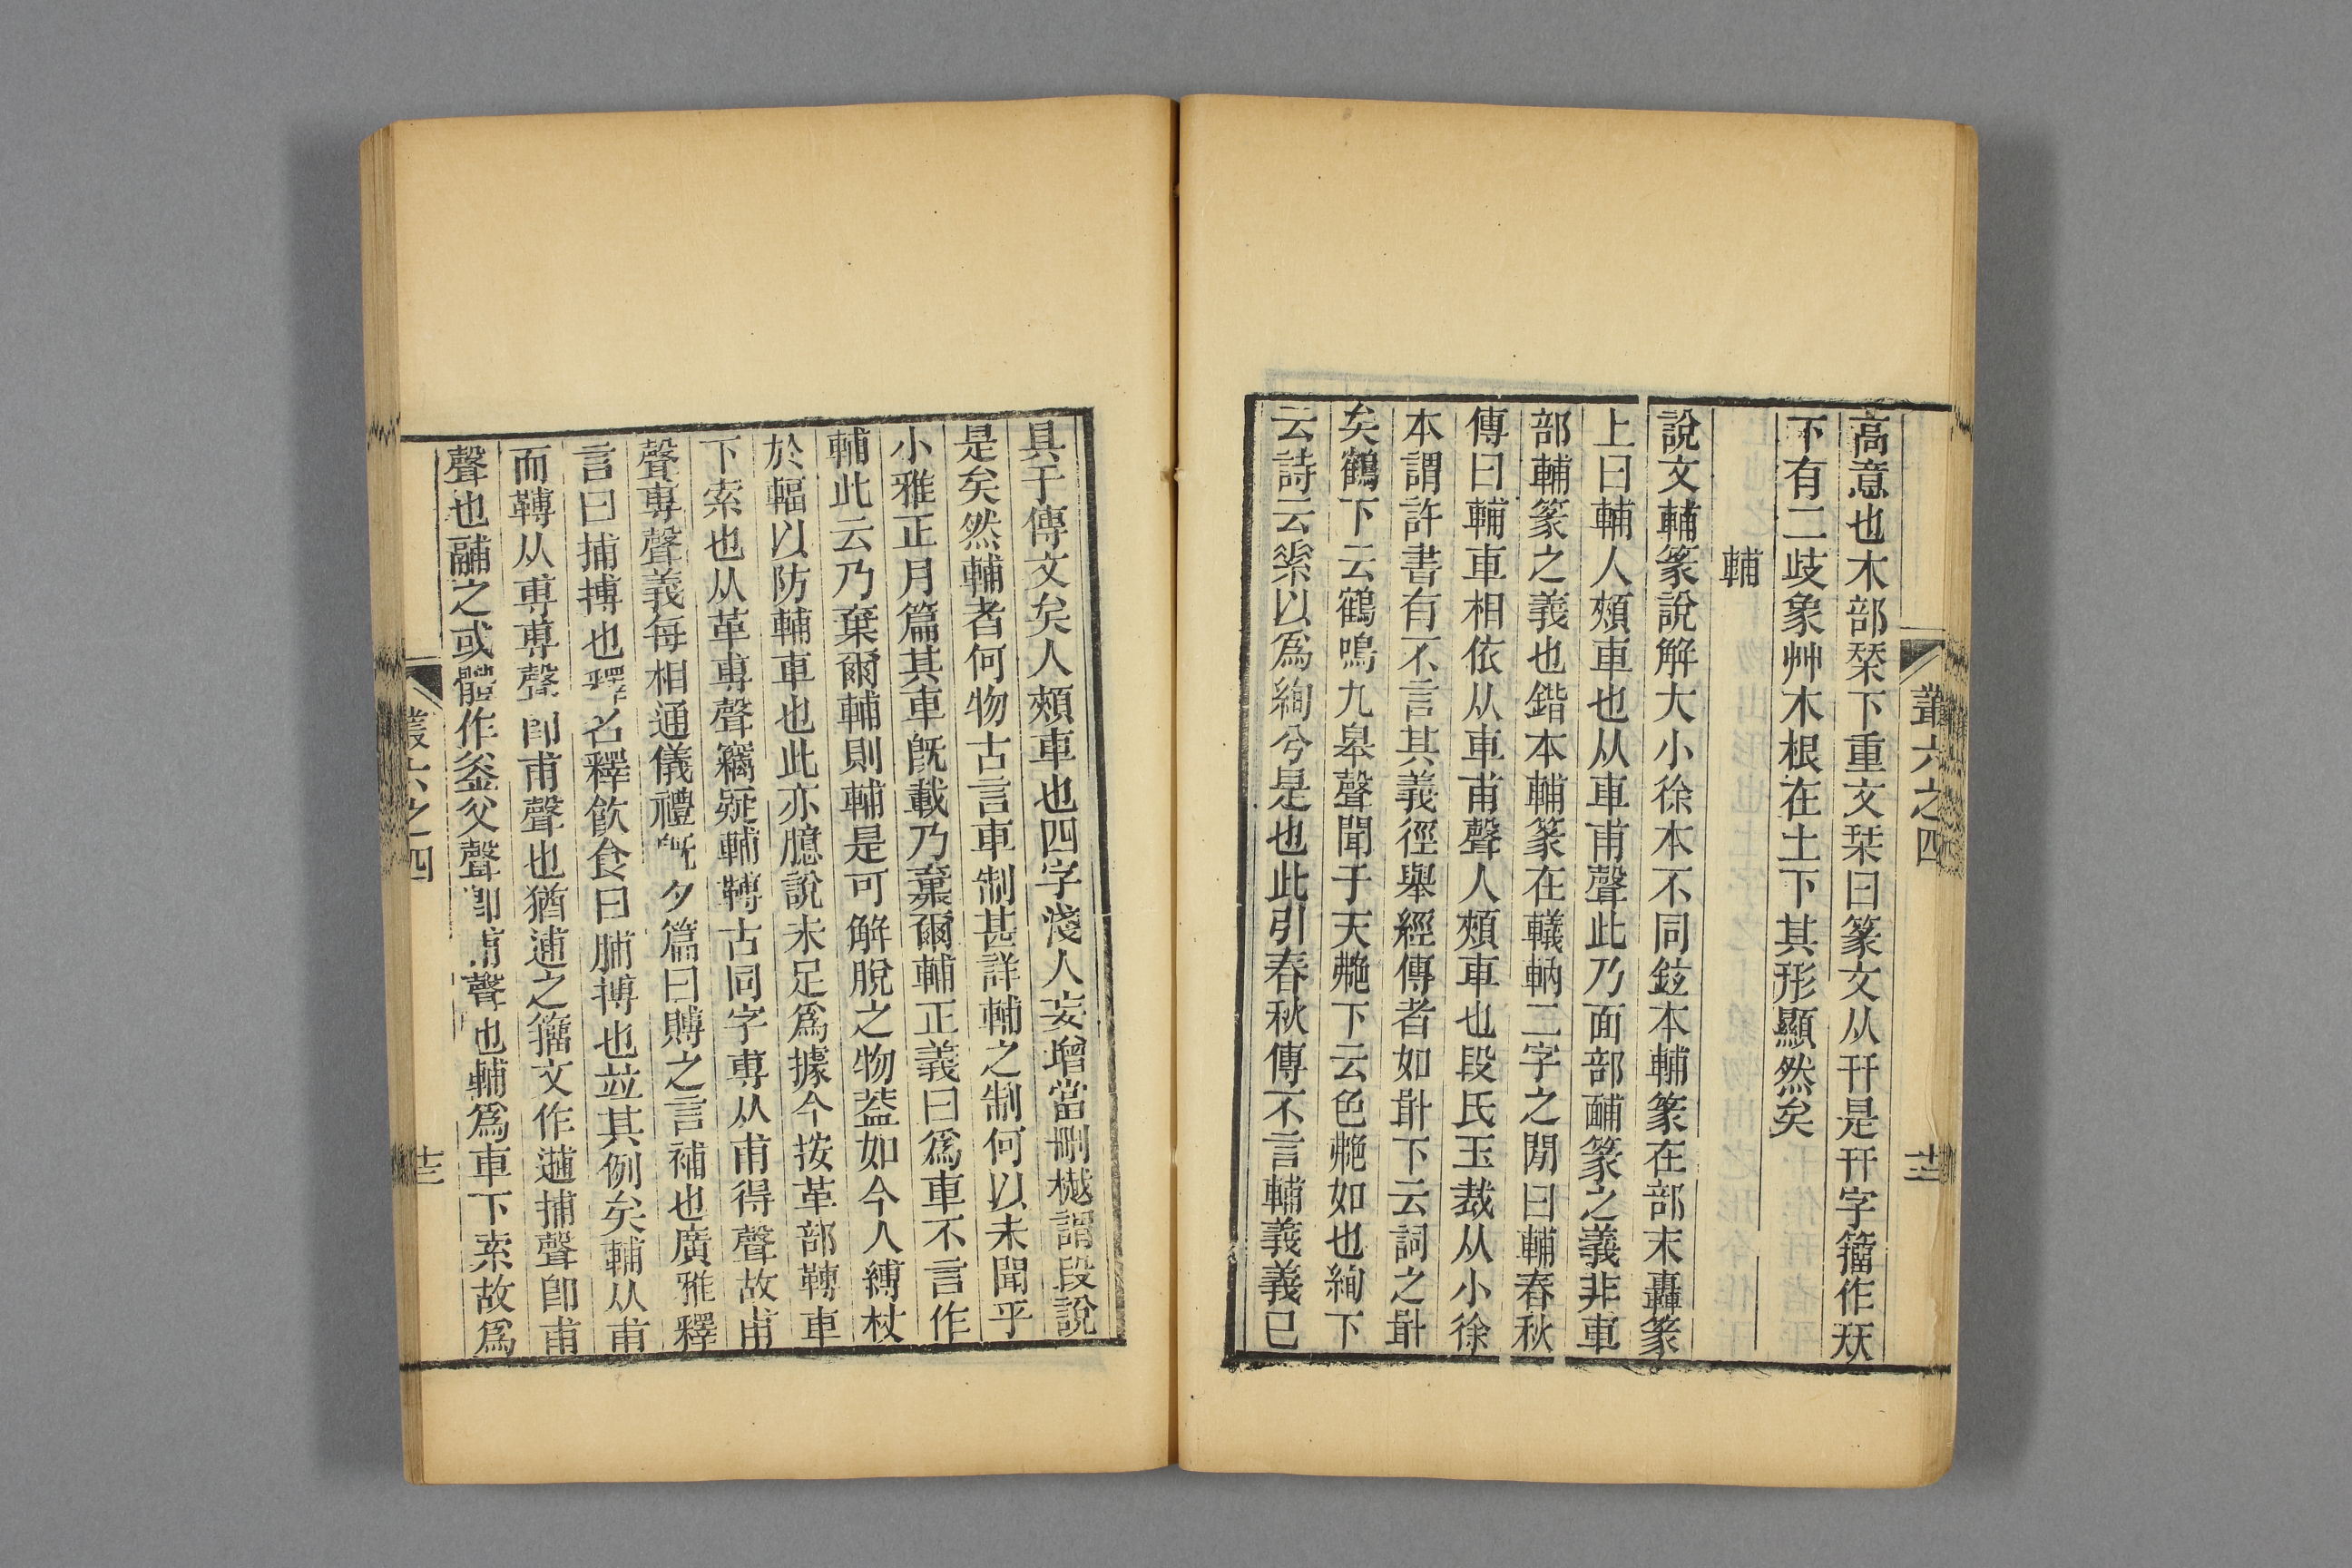 叢六之四
高意也木部栞下重文栞曰篆文从幵是幵字籀作𡗗
下有二歧象艸木根在土下其形顯然矣
輔
說文輔篆說解大小徐本不同鉉本輔篆在部末轟篆
上曰輔人頰車也从車甫聲此乃面部䩉篆之義非車
部輔篆之義也鍇本輔篆在轙軜二字之閒曰輔春秋
傳曰輔車相依从車甫聲人頰車也段氏玉裁从小徐
本謂許書有不言其義徑舉經傳者如㔹下云詞之㔹
矣鶴下云鶴鳴九皋聲聞于天艴下云色艴如也絢下
云詩云素以爲絢兮是也此引春秋傳不言輔義義已
具于傳文矣人頰車也四字淺人妄增當刪樾謂段說
是矣然輔者何物古言車制甚詳輔之制何以未聞乎
小雅正月篇其車旣載乃棄爾輔正義曰爲車不言作
輔此云乃棄爾輔則輔是可解脫之物葢如今人縛杖
於輻以防輔車也此亦臆說未足爲據今按革部䪙車
下索也从革尃聲竊疑輔䪙古同字尃从甫得聲故甫
聲尃聲義每相通儀禮旣夕篇曰賻之言補也廣雅釋
言曰捕搏也釋名釋飮食曰脯搏也竝其例矣輔从甫
而䪙从尃尃聲卽甫聲也猶逋之籀文作逋捕聲卽甫
聲也鬴之或體作釜父聲卽甫聲也輔爲車下索故爲
叢六之四